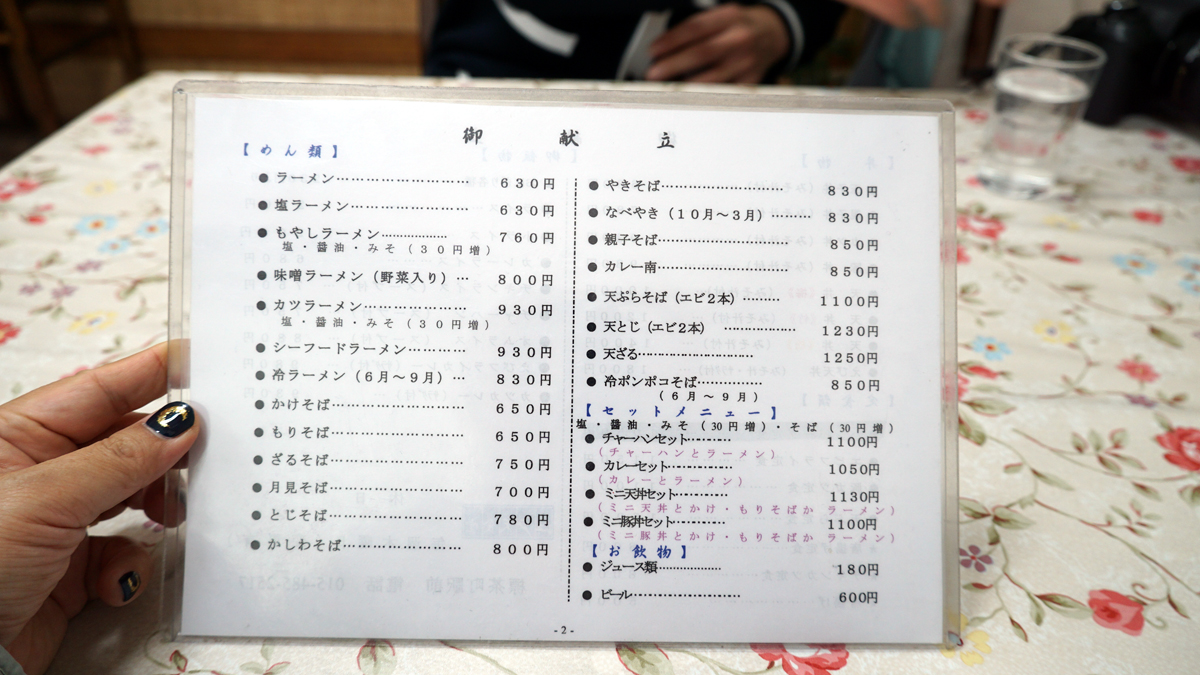 御献立
【めん類】
●ラーメン…………………… 630円
●塩ラーメン………………… 630円
●もやしラーメン…………… 760円
塩・醤油・みそ(30円増)
●味噌ラーメン(野菜入り)… 800円
●カツラーメン……………… 930円
塩・醤油・みそ(30円増)
●シーフードラーメン……… 930円
●冷ラーメン(6月~9月)… 830円
●かけそば…………………… 650円
●もりそば…………………… 650円
●ざるそば…………………… 750円
●月見そば…………………… 700円
●とじそば…………………… 780円
●かしわそば………………… 800円
●やきそば…………………… 830円
●なべやき(10月~3月)……… 830円
●親子そば…………………… 850円
●カレー南…………………… 850円
●天ぷらそば(エビ2本)……… 1100円
●天とじ(エビ2本) ………… 1230円
●天ざる……………………… 1250円
●冷ポンポコそば…………… 850円
(6月~9月)
【セットメニュー】
塩・醤油・みそ(30円増)・そば(30円増)
●チャーハンセット………… 1100円
(チャーハンとラーメン)
●カレーセット……………… 1050円
(カレーとラーメン)
●ミニ天丼セット…………… 1130円
(ミニ天丼とかけ・もりそばか ラーメン)
●ミニ豚丼セット…………… 1100円
(ミニ豚丼とかけ・もりそばか ラーメン)
【お飲物】
●ジュース類………………… 180円
●ビール……………………… 600円
-2-